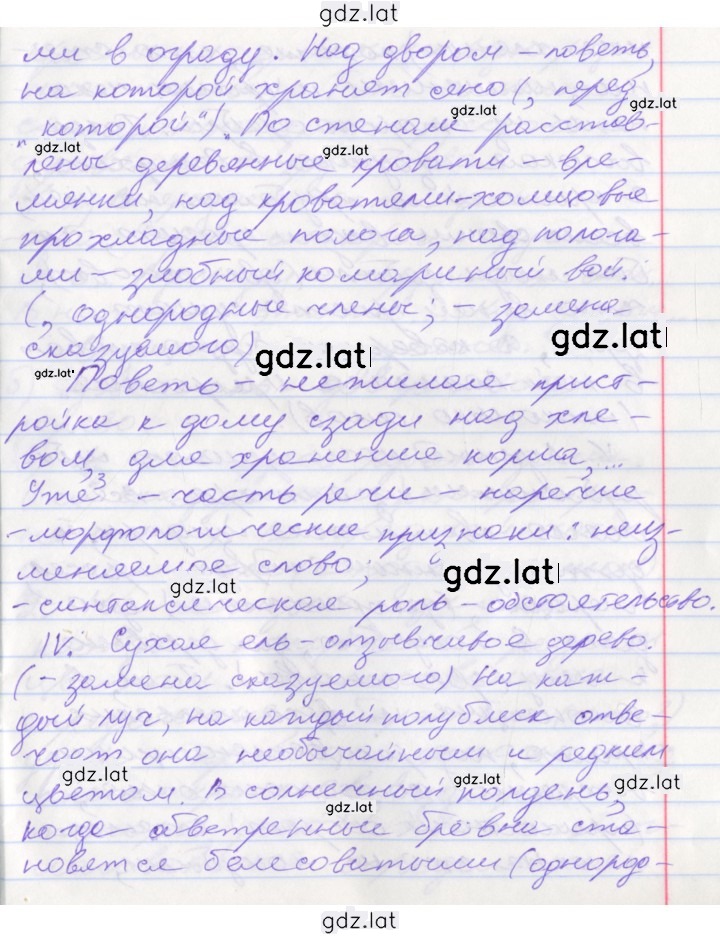 gdz.lat
ми в ограду. Над двором – поветь,
на которой хранят сено (, перед
gdz.lat
„которой"). По стенам расстав-
gdz.lat
gdz.lat
лены деревянные кровати – вре-
мянки, над кроватями – холщовые
прохладные полога, над полога-
ми – злобный комариный вой.
(, однородные члены; – замена
gdz.lat
сказуемого)
gdz.lat
gdz.lat
Поветь – нежилая прист-
ройка к дому сзади над хле-
вом, для хранения корма, ...
Уже³ – часть речи – наречие
-морфологические признаки: неиз-
меняемое слово;
gdz.lat
gdz.lat
-синтаксическая роль – обстоятельство.
IV. Сухая ель – отзывчивое дерево.
(– замена сказуемого) На каж-
дый луч, на каждый полублеск отве-
чает она необычайным и редким
gdz.lat
gdz.lat
gdz.lat
цветом. В солнечный полдень,
gdz.lat
когда обветренные бревна ста-
новятся белесоватыми (однородо-
gdz.lat